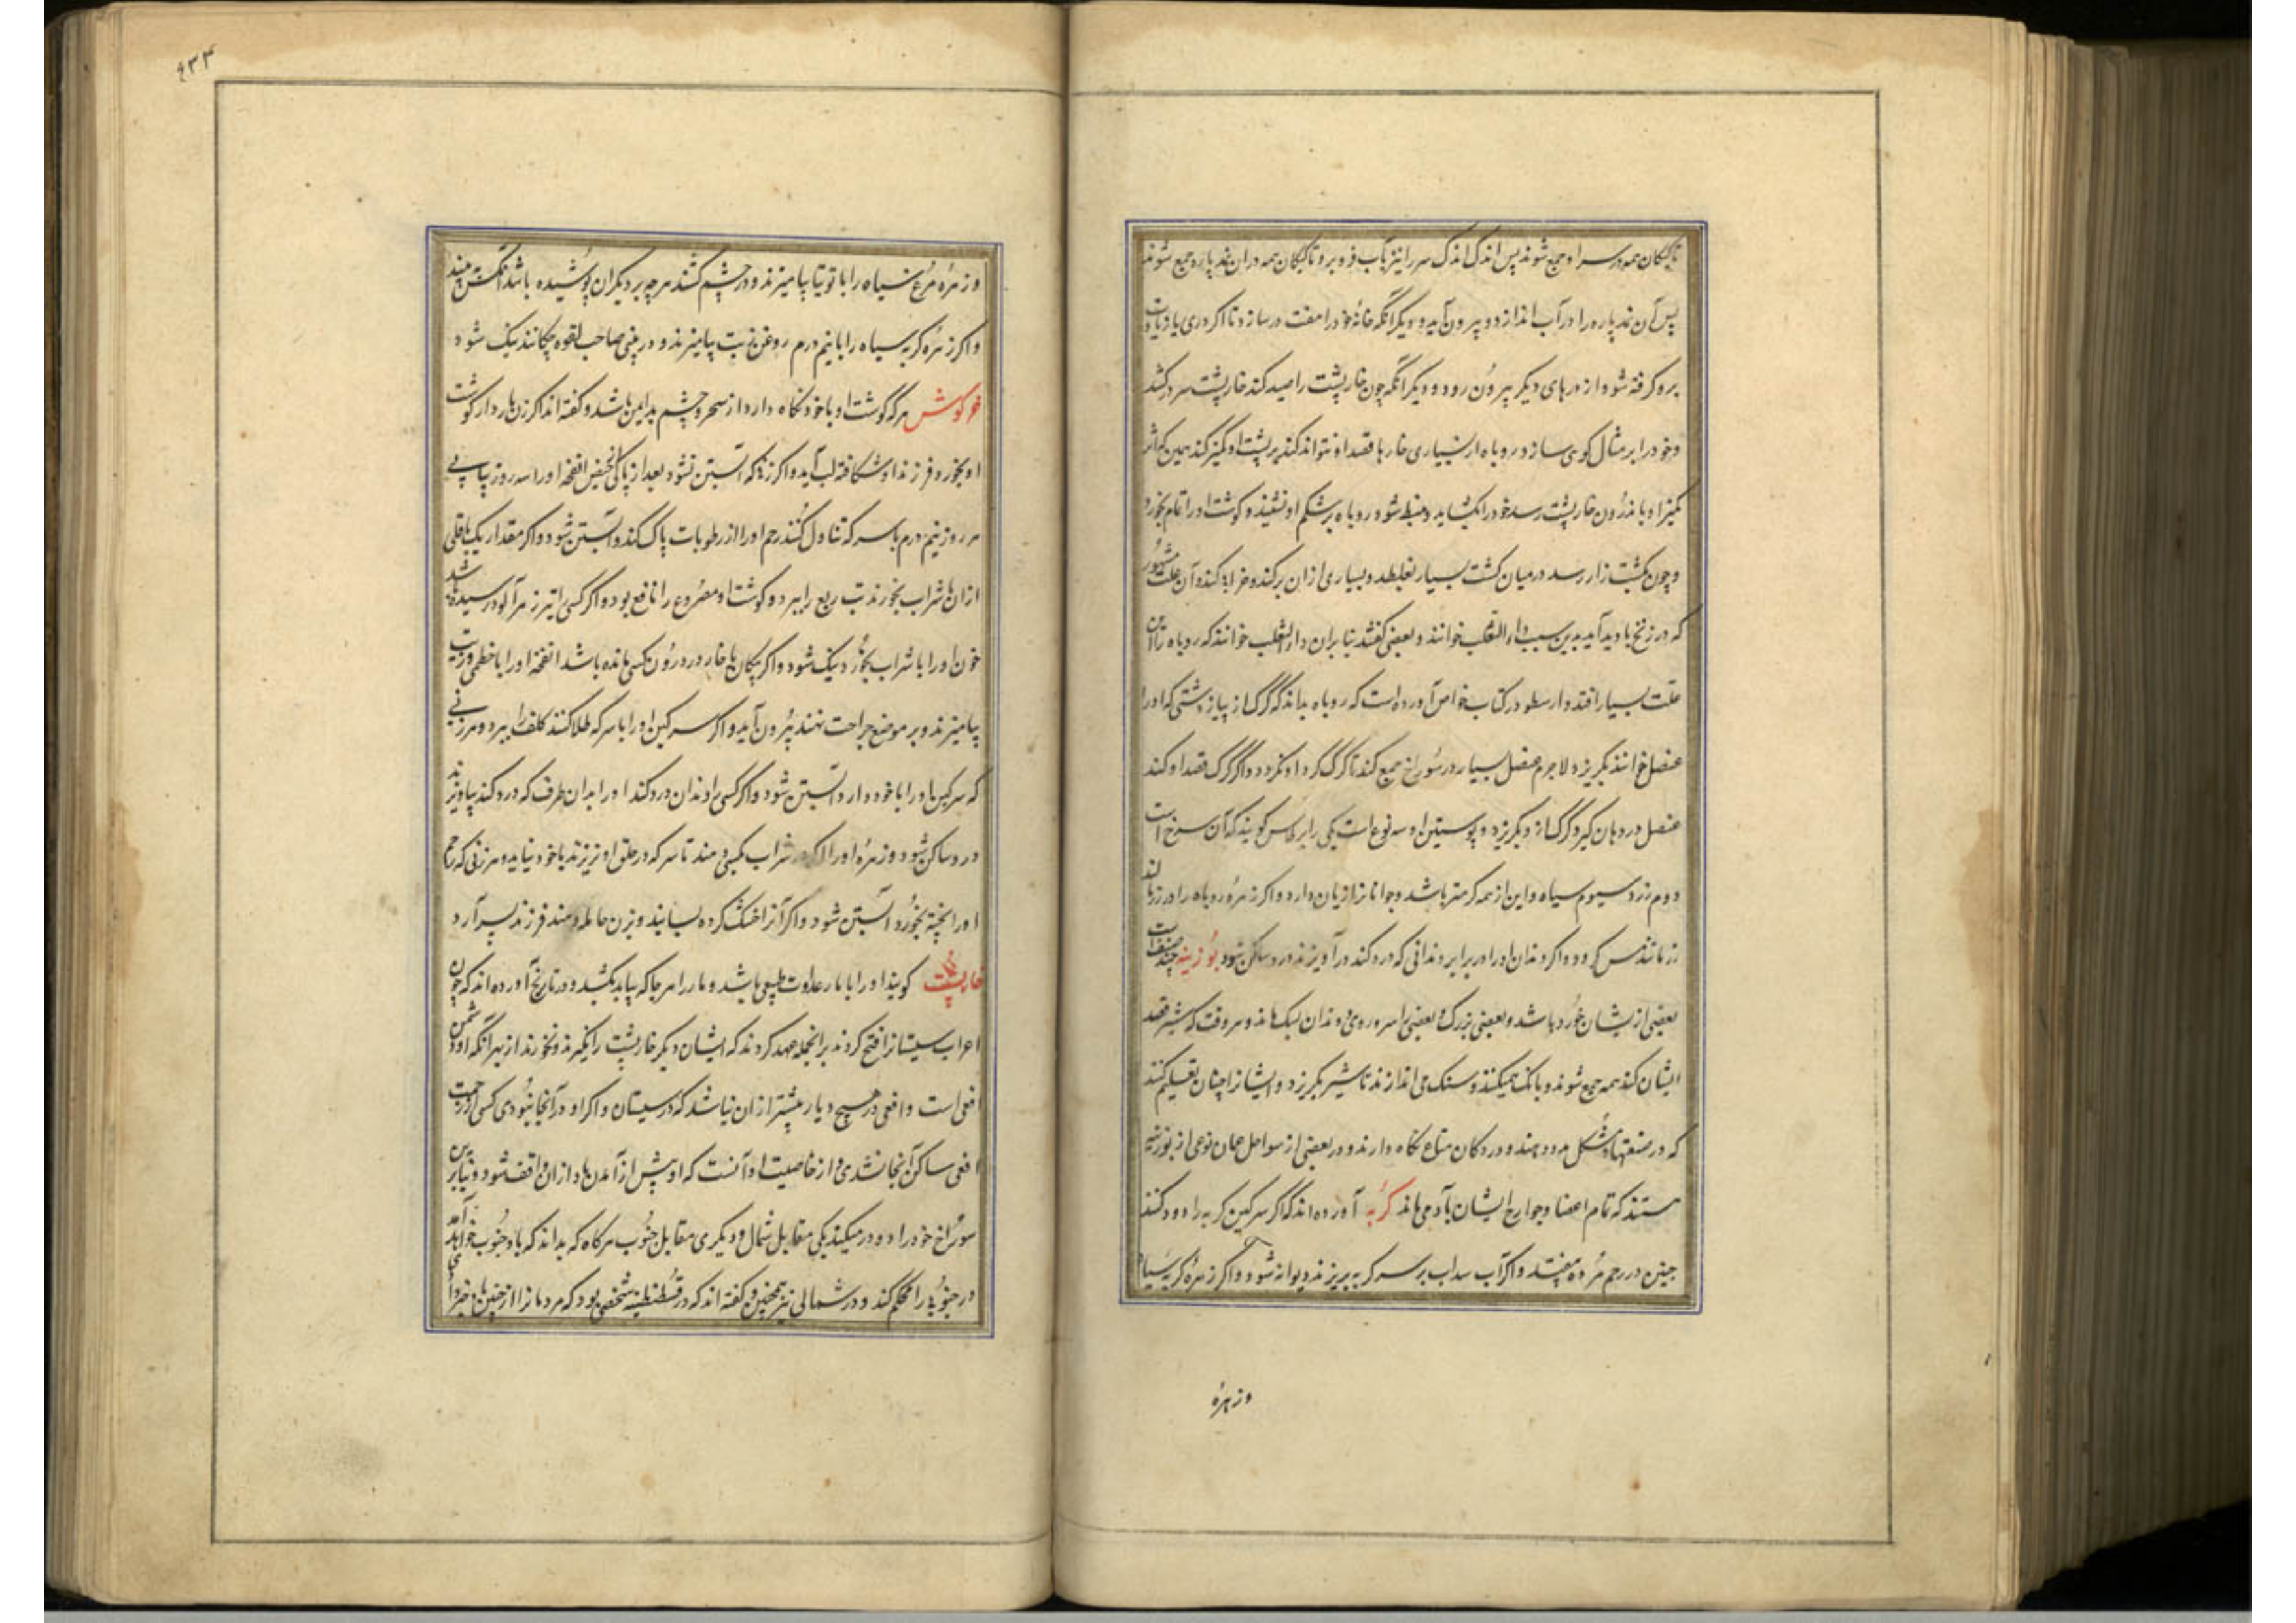 تا کیکان همه در سر او جمع شوند پس اندک اندک سر را نیز بآب فرو برد تا کیکان همه در ان نمد پاره جمع شوند
پس آن نمد پاره را در آب اندازد و بیرون آید و دیگر آنکه خانهٔ خود را هفت در سازد تا اگر دری یا زیادت
برو گرفته شود از درهای دیگر بیرون رود و دیگر آنکه چون خارپشت را صید کند خارپشت سر در کشد
و خود را بر مثال گوی سازد روباه از بسیاری خارها قصد او نتواند کند بر پشت او کمیز کند همین که اثر
کمیز او باندرون خارپشت رسد خود را بکشاید و منبسط شود روباه بر شکم او نشیند و گوشت او را تمام بخورد
و چون بکشت زار رسد در میان کشت بسیار بغلطد و بسیاری از ان بر کند و خراب کند و آن علت مشهور
که در زنخ بادید آید بدین سبب داء الثعلب خوانند و بعضی گفتند بنا بران داء الثعلب خوانند که روباه را این
علت بسیار افتد و ارسطو در کتاب خواص آورده است که روباه بداند که گرگ از پیاز دشتی که او را
عنصل خوانند بگریزد لاجرم عنصل بسیار در سوراخ جمع کند تا گرگ گرد او نگردد و اگر گرگ قصد او کند
عنصل در دهان گیرد گرگ از و بگریزد و پوستین او سه نوع است یکی را برطاس گویند که آن سرخ است
دوم زرد سیوم سیاه و این از همه گرمتر باشد و جوانان را زیان دارد و اگر زهرهٔ روباه را در زر مالند
زر مانند مس گردد و اگر دندان او را در برابر دندانی که درد کند در آویزند درد ساکن شود بوزینه چند صنف است
بعضی از یشان خورد باشد و بعضی بزرگ و بعضی را سر و روی و دندان بسگ ماند و هر وقت که شیر قصد
ایشان کند همه جمع شوند و بانگ همیکنند و سنگ می اندازند تا شیر بگریزد و ایشان را چنان تعلیم کنند
که در صنعتهاء مشکل مدد دهند و در دکان متاع نگاه دارند و در بعضی از سواحل عمان نوعی از بوزینه
هستند که تمام اعضا و جوارح ایشان بآدمی ماند گربه آورده اند که اگر سرگین گربه را دود کنند
جنین در رحم مرده بیفتد و اگر آب سداب بر سر گربه بریزند دیوانه شود و اگر زهرهٔ گربه سیاه
و زهرهٔ
۴۳۳
و زهرهٔ مرغ سیاه را با توتیا بیامیزند و در چشم کشند هر چه بر دیگران پوشیده باشد آنکس بیند
و اگر زهرهٔ گربه سیاه را با نیم درم روغن زیت بیامیزند و در بینی صاحب لقوه چکانند نیک شود
خرگوش هر که گوشت او با خود نگاه دارد از سحر و چشم بد ایمن باشد و گفته اند اگر زن باردار گوشت
او بخورد فرزند او شکافته لب آید و اگر زنی که آبستن نشود بعد از پاکی حیض انفحه او را سه روز پیاپی
هر روز نیم درم با سرکه تناول کند رحم او را از رطوبات پاک کند و آبستن شود و اگر مقدار یک باقلی
از ان با شراب بخورند تب ربع را ببرد و گوشت او مصروع را نافع بود و اگر کسی را تیر زهر آلود رسیده باشد
خون او را با شراب بخورد نیک شود و اگر پیکان یا خار در درون کسی مانده باشد انفحهٔ او را با خطمی و زیت
بیامیزند و بر موضع جراحت نهند بیرون آید و اگر سرگین او را با سرکه طلا کنند کلف را ببرد و هر زنی
که سرگین او را با خود دارد آبستن شود و اگر کسی را دندان درد کند او را بدان طرف که درد کند بیاویزند
درد ساکن شود و زهرهٔ او را اگر در شراب بکسی دهند تا سرکه در حلق او نریزند باخود نیاید و هر زنی که رحم
او را پخته بخورد آبستن شود و اگر آنرا خشک کرده بسایند و بزن حامله دهند فرزند پسر آرد
خارپشت گویند او را با مار عداوت طبیعی باشد و مار را هر جا که بیابد بکشد و در تاریخ آورده اند که چون
اعراب سیستان را فتح کردند بر انجمله عهد کردند که ایشان دیگر خارپشت را نگیرند و نخورند از بهر آنکه او دشمن
افعی است و افعی در هیچ دیار بیشتر از ان نباشد که در سیستان و اگر او در آنجا نبودی کسی از زحمت
افعی ساکن آنجا نشدی و از خاصیت او آنست که او پیش از آمدن باد از ان واقف شود و بنابرین
سوراخ خود را دو در میکند یکی مقابل شمال و دیگری مقابل جنوب هر گاه که بداند که باد جنوب خواهد آمد
در جنوبی را محکم کند و در شمالی نیز همچنین و گفته اند که در قسطنطنیه شخصی بود که مردمان را از جنین باد خبر دادی